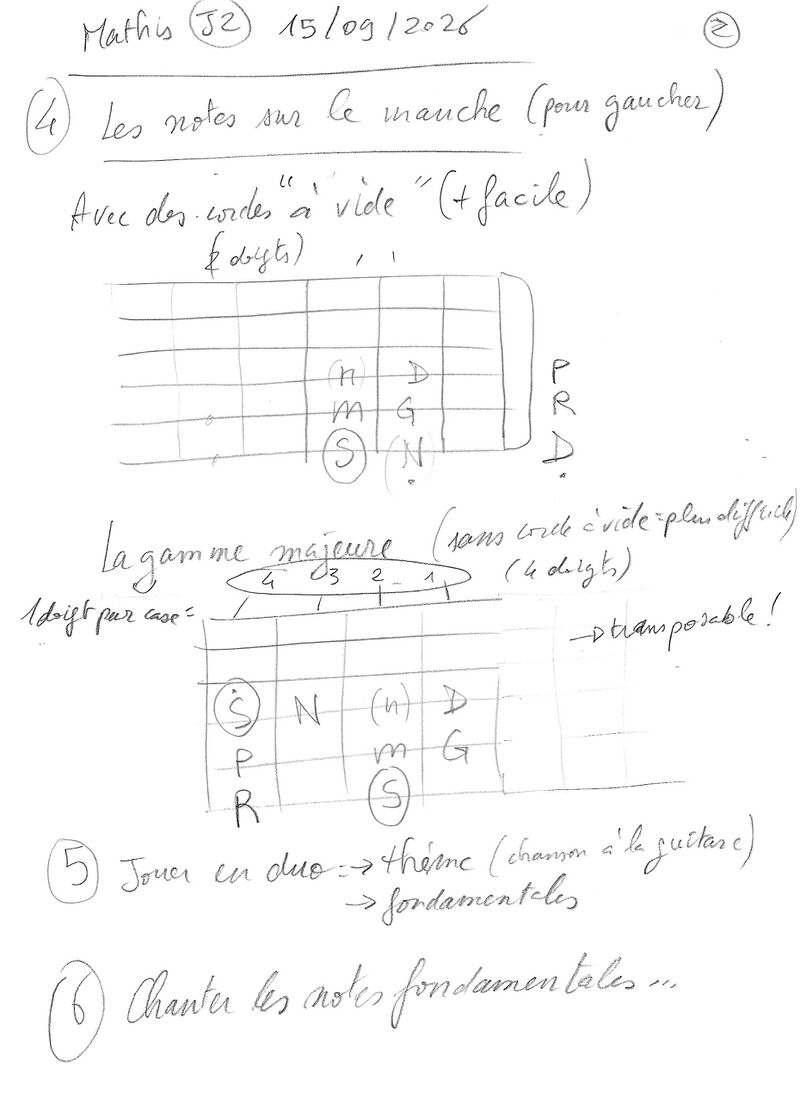 Mathis J2 15/09/2026 2
4 Les notes sur le manche (pour gaucher)
Avec des cordes "à vide" (+ facile)
(2 doigts)
(n) D P
m G R
S (N) D
La gamme majeure (sans corde à vide = plus difficile)
4 3 2 1 (4 doigts)
1 doigt par case =
→ transposable !
S N (n) D
P m G
R S
5 Jouer en duo → thème (chanson à la guitare)
→ fondamentales
6 Chanter les notes fondamentales...